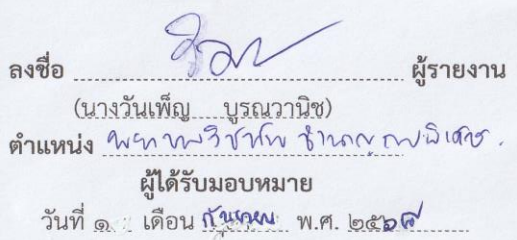 ลงชื่อ ผู้รายงาน
(นางวันเพ็ญ บูรณวานิช)
ตำแหน่ง พยาบาลวิชาชีพ ชำนาญการพิเศษ
ผู้ได้รับมอบหมาย
วันที่ ๑ เดือน กันยายน พ.ศ. ๒๕๖๘